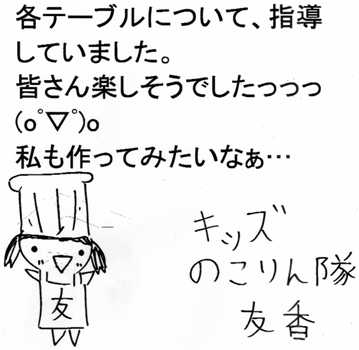 各テーブルについて、指導
していました。
皆さん楽しそうでしたっっっ
(oﾟ▽ﾟ)o
私も作ってみたいなぁ…
友
キッズ
のこりん隊
友香